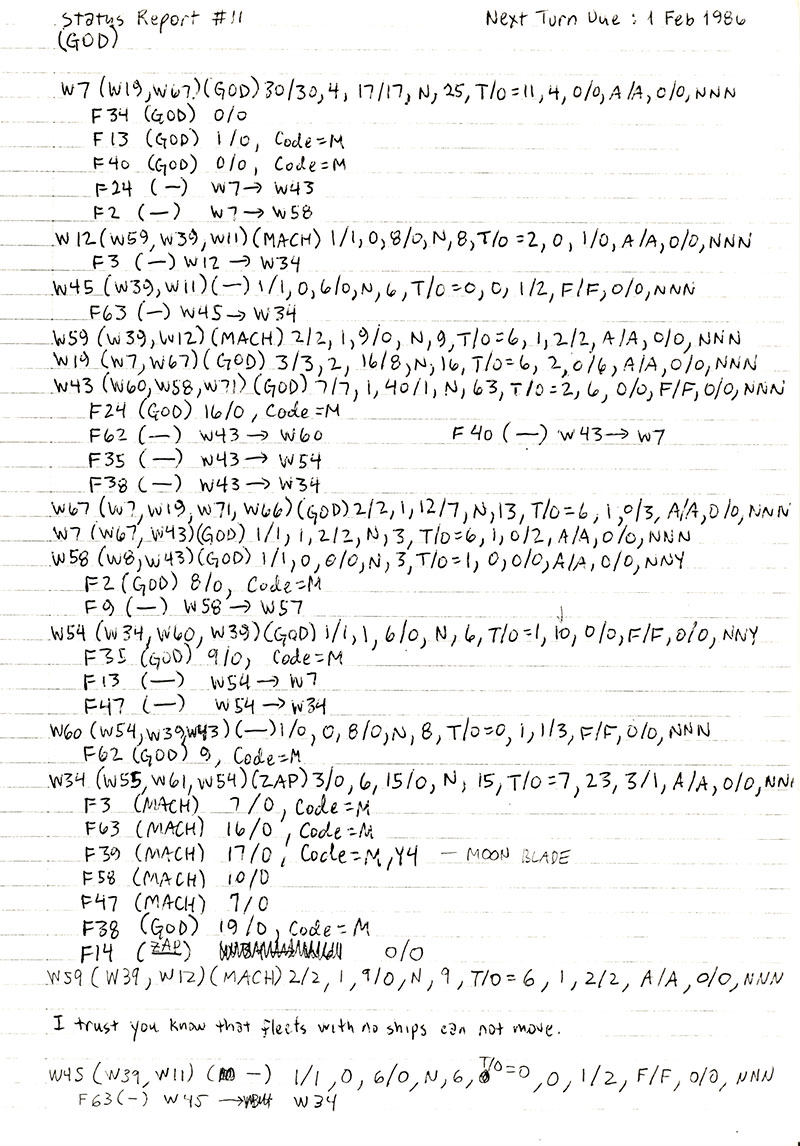 Status Report #11 Next Turn Due : 1 Feb 1986
(GOD)
W7 (W19, W67) (GOD) 30/30, 4, 17/17, N, 25, T/O=11, 4, 0/0, A/A, 0/0, NNN
F34 (GOD) 0/0
F13 (GOD) 1/0, Code=M
F40 (GOD) 0/0, Code=M
F24 (—) W7→ W43
F2 (—) W7→W58
W12 (W59, W39, W11) (MACH) 1/1, 0, 8/0, N, 8, T/O=2, 0, 1/0, A/A, 0/0, NNN
F3 (—) W12 → W34
W45 (W39, W11) (—) 1/1, 0, 6/0, N, 6, T/O=0, 0, 1/2, F/F, 0/0, NNN
F63 (—) W45→ W34
W59 (W39, W12) (MACH) 2/2, 1, 9/0, N, 9, T/O=6, 1, 2/2, A/A, 0/0, NNN
W19 (W7, W67) (GOD) 3/3, 2, 16/8, N, 16, T/O=6, 2, 0/6, A/A, 0/0, NNN
W43 (W60, W58, W71) (GOD) 7/7, 1, 40/1, N, 63, T/O=2, 6, 0/0, F/F, 0/0, NNN
F24 (GOD) 16/0, Code=M
F62 (—) W43 → W60 F40 (—) W43→ W7
F35 (—) W43 → W54
F38 (—) W43 → W34
W67 (W7, W19, W71, W66) (GOD) 2/2, 1, 12/7, N, 13, T/O=6, 1, 0/3, A/A, 0/0, NNN
W7 (W67, W43) (GOD) 1/1, 1, 2/2, N, 3, T/O=6, 1, 0/2, A/A, 0/0, NNN
W58 (W8, W43) (GOD) 1/1, 0, 0/0, N, 3, T/O=1, 0, 0/0, A/A, 0/0, NNY
F2 (GOD) 8/0, Code=M
F9 (—) W58→ W57
W54 (W34, W60, W39) (GOD) 1/1, 1, 6/0, N, 6, T/O=1, 10, 0/0, F/F, 0/0, NNY
F35 (GOD) 9/0, Code=M
F13 (—) W54 → W7
F47 (—) W54 → W34
W60 (W54, W39, W43) (—) 1/0, 0, 8/0, N, 8, T/O=0, 1, 1/3, F/F, 0/0, NNN
F62 (GOD) 9, Code=M
W34 (W55, W61, W54) (ZAP) 3/0, 6, 15/0, N, 15, T/O=7, 23, 3/1, A/A, 0/0, NN
F3 (MACH) 7/0, Code=M
F63 (MACH) 16/0, Code=M
F39 (MACH) 17/0, Code=M, Y4 — MOON BLADE
F58 (MACH) 10/0
F47 (MACH) 7/0
F38 (GOD) 19/0, Code=M
F14 (ZAP) 0/0
W59 (W39, W12) (MACH) 2/2, 1, 9/0, N, 9, T/O=6, 1, 2/2, A/A, 0/0, NNN
I trust you know that fleets with no ships can not move.
W45 (W39, W11) (—) 1/1, 0, 6/0, N, 6, T/O=0, 0, 1/2, F/F, 0/0, NNN
F63 (—) W45 → W34